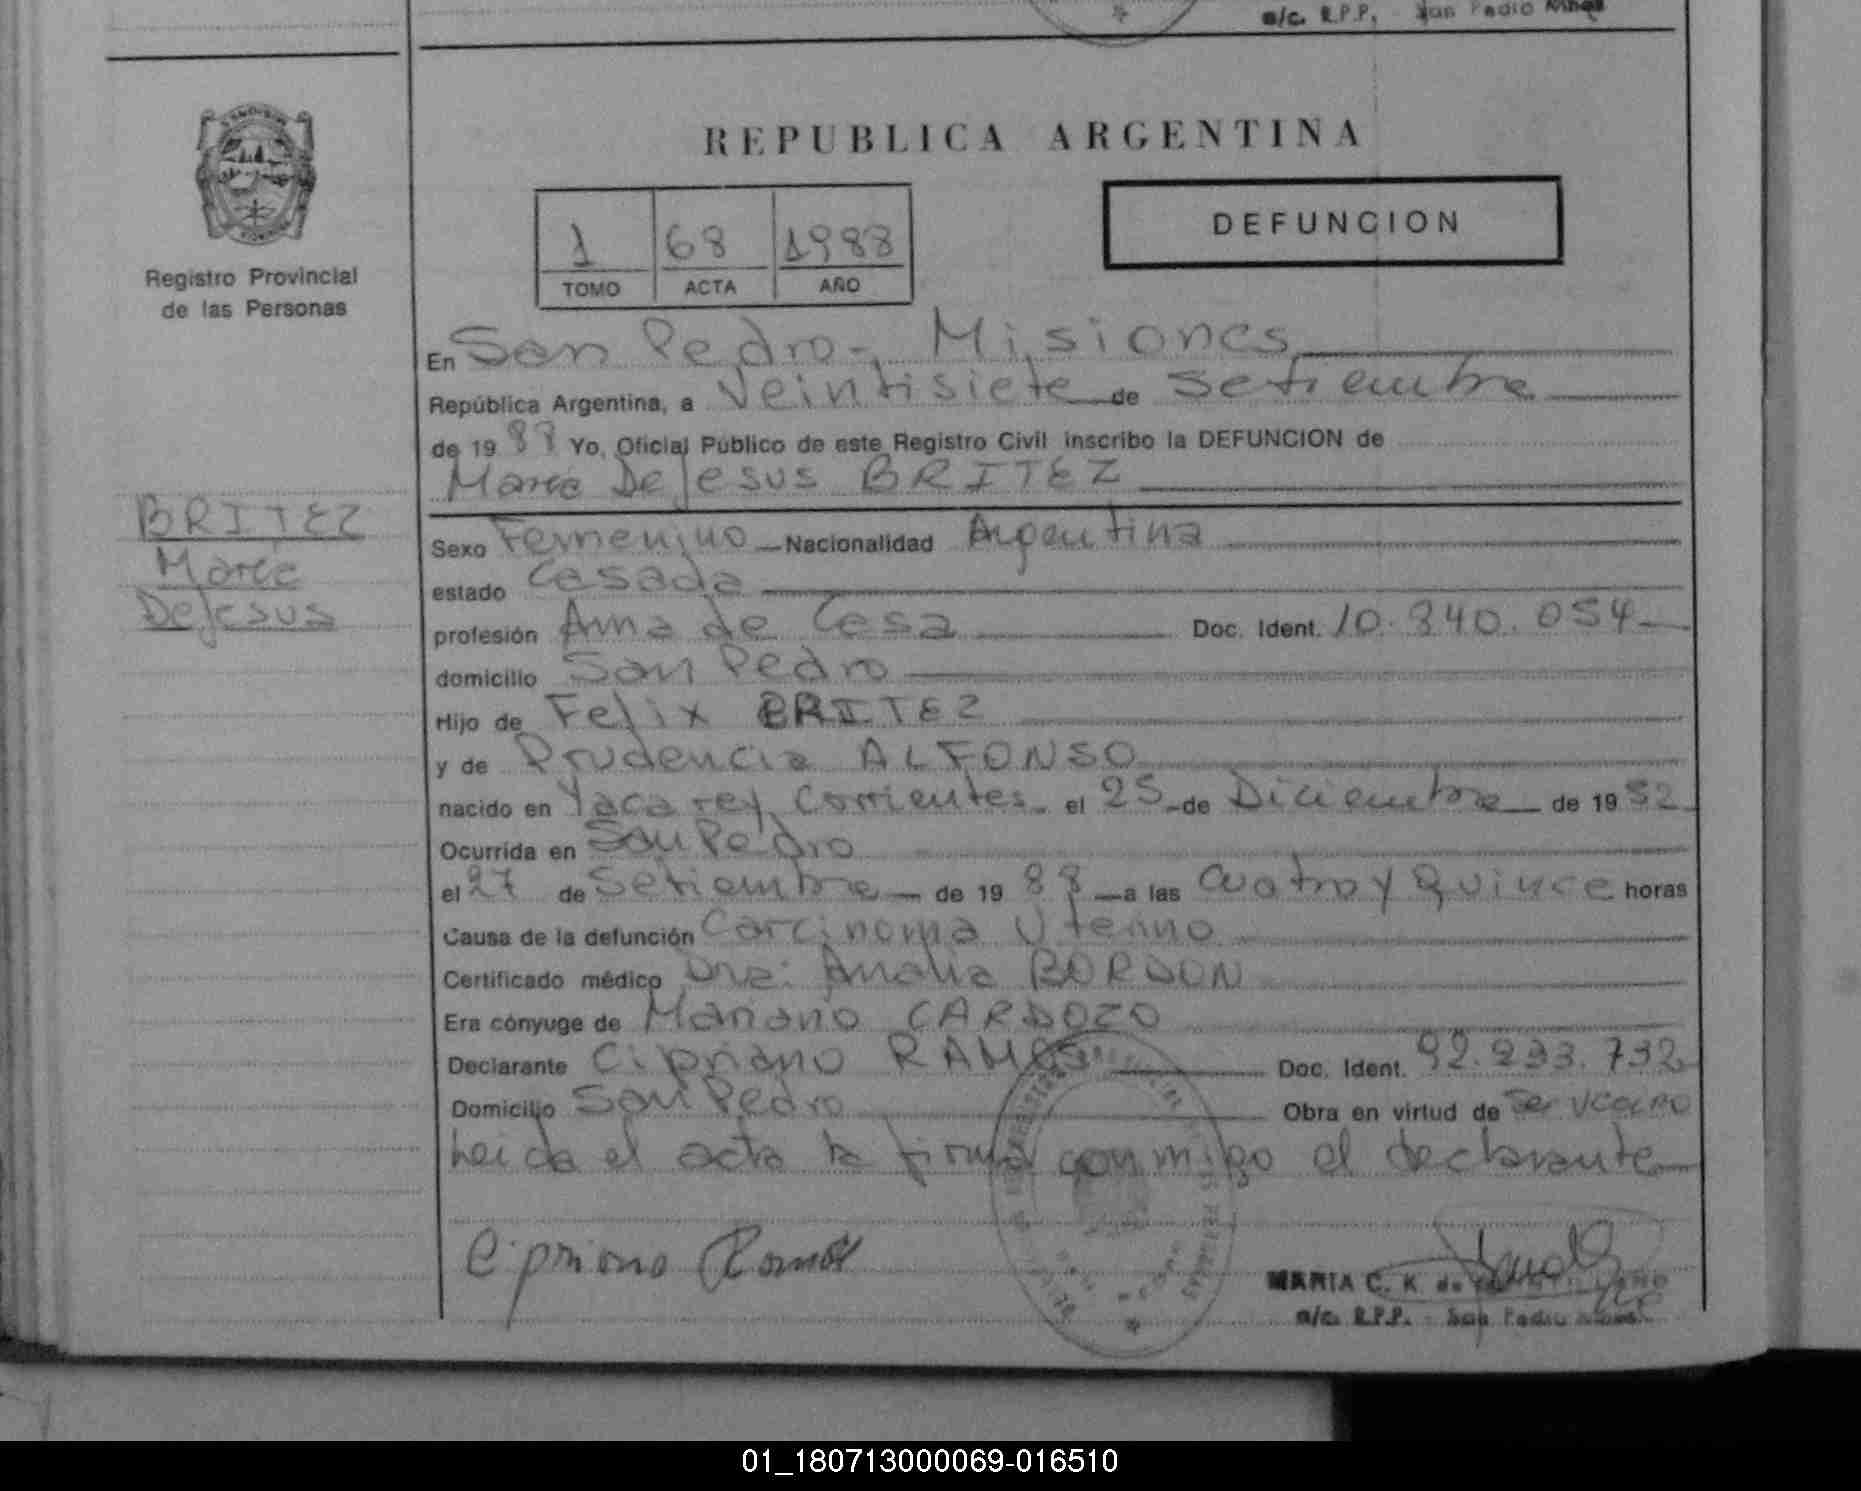 a/c. R.P.P. San Pedro Mnes
REPUBLICA ARGENTINA
1 68 1988
TOMO ACTA AÑO
DEFUNCION
Registro Provincial
de las Personas
En San Pedro - Misiones
República Argentina, a Veintisiete de Setiembre
de 19 88 Yo, Oficial Público de este Registro Civil inscribo la DEFUNCION de
Maria De Jesus BRITEZ
BRITEZ
Maria
De Jesus
Sexo Femenino Nacionalidad Argentina
estado Casada
profesión Ama de Casa Doc. Ident. 10.840.054
domicilio San Pedro
Hijo de Felix BRITEZ
y de Prudencia ALFONSO
nacido en Yacarey Corrientes el 25 de Diciembre de 19 52
Ocurrida en San Pedro
el 27 de Setiembre de 19 88 a las Cuatro y Quince horas
Causa de la defunción Carcinoma Uterino
Certificado médico Dra. Analia BORDON
Era cónyuge de Mariano CARDOZO
Declarante Cipriano RAMOS Doc. Ident. 92.233.732
Domicilio San Pedro Obra en virtud de Ser vecino
Leida el acta la firma conmigo el declarante
Cipriano Ramos
MARIA C. K. de
a/c. R.P.P. San Pedro Mnes
01_180713000069-016510